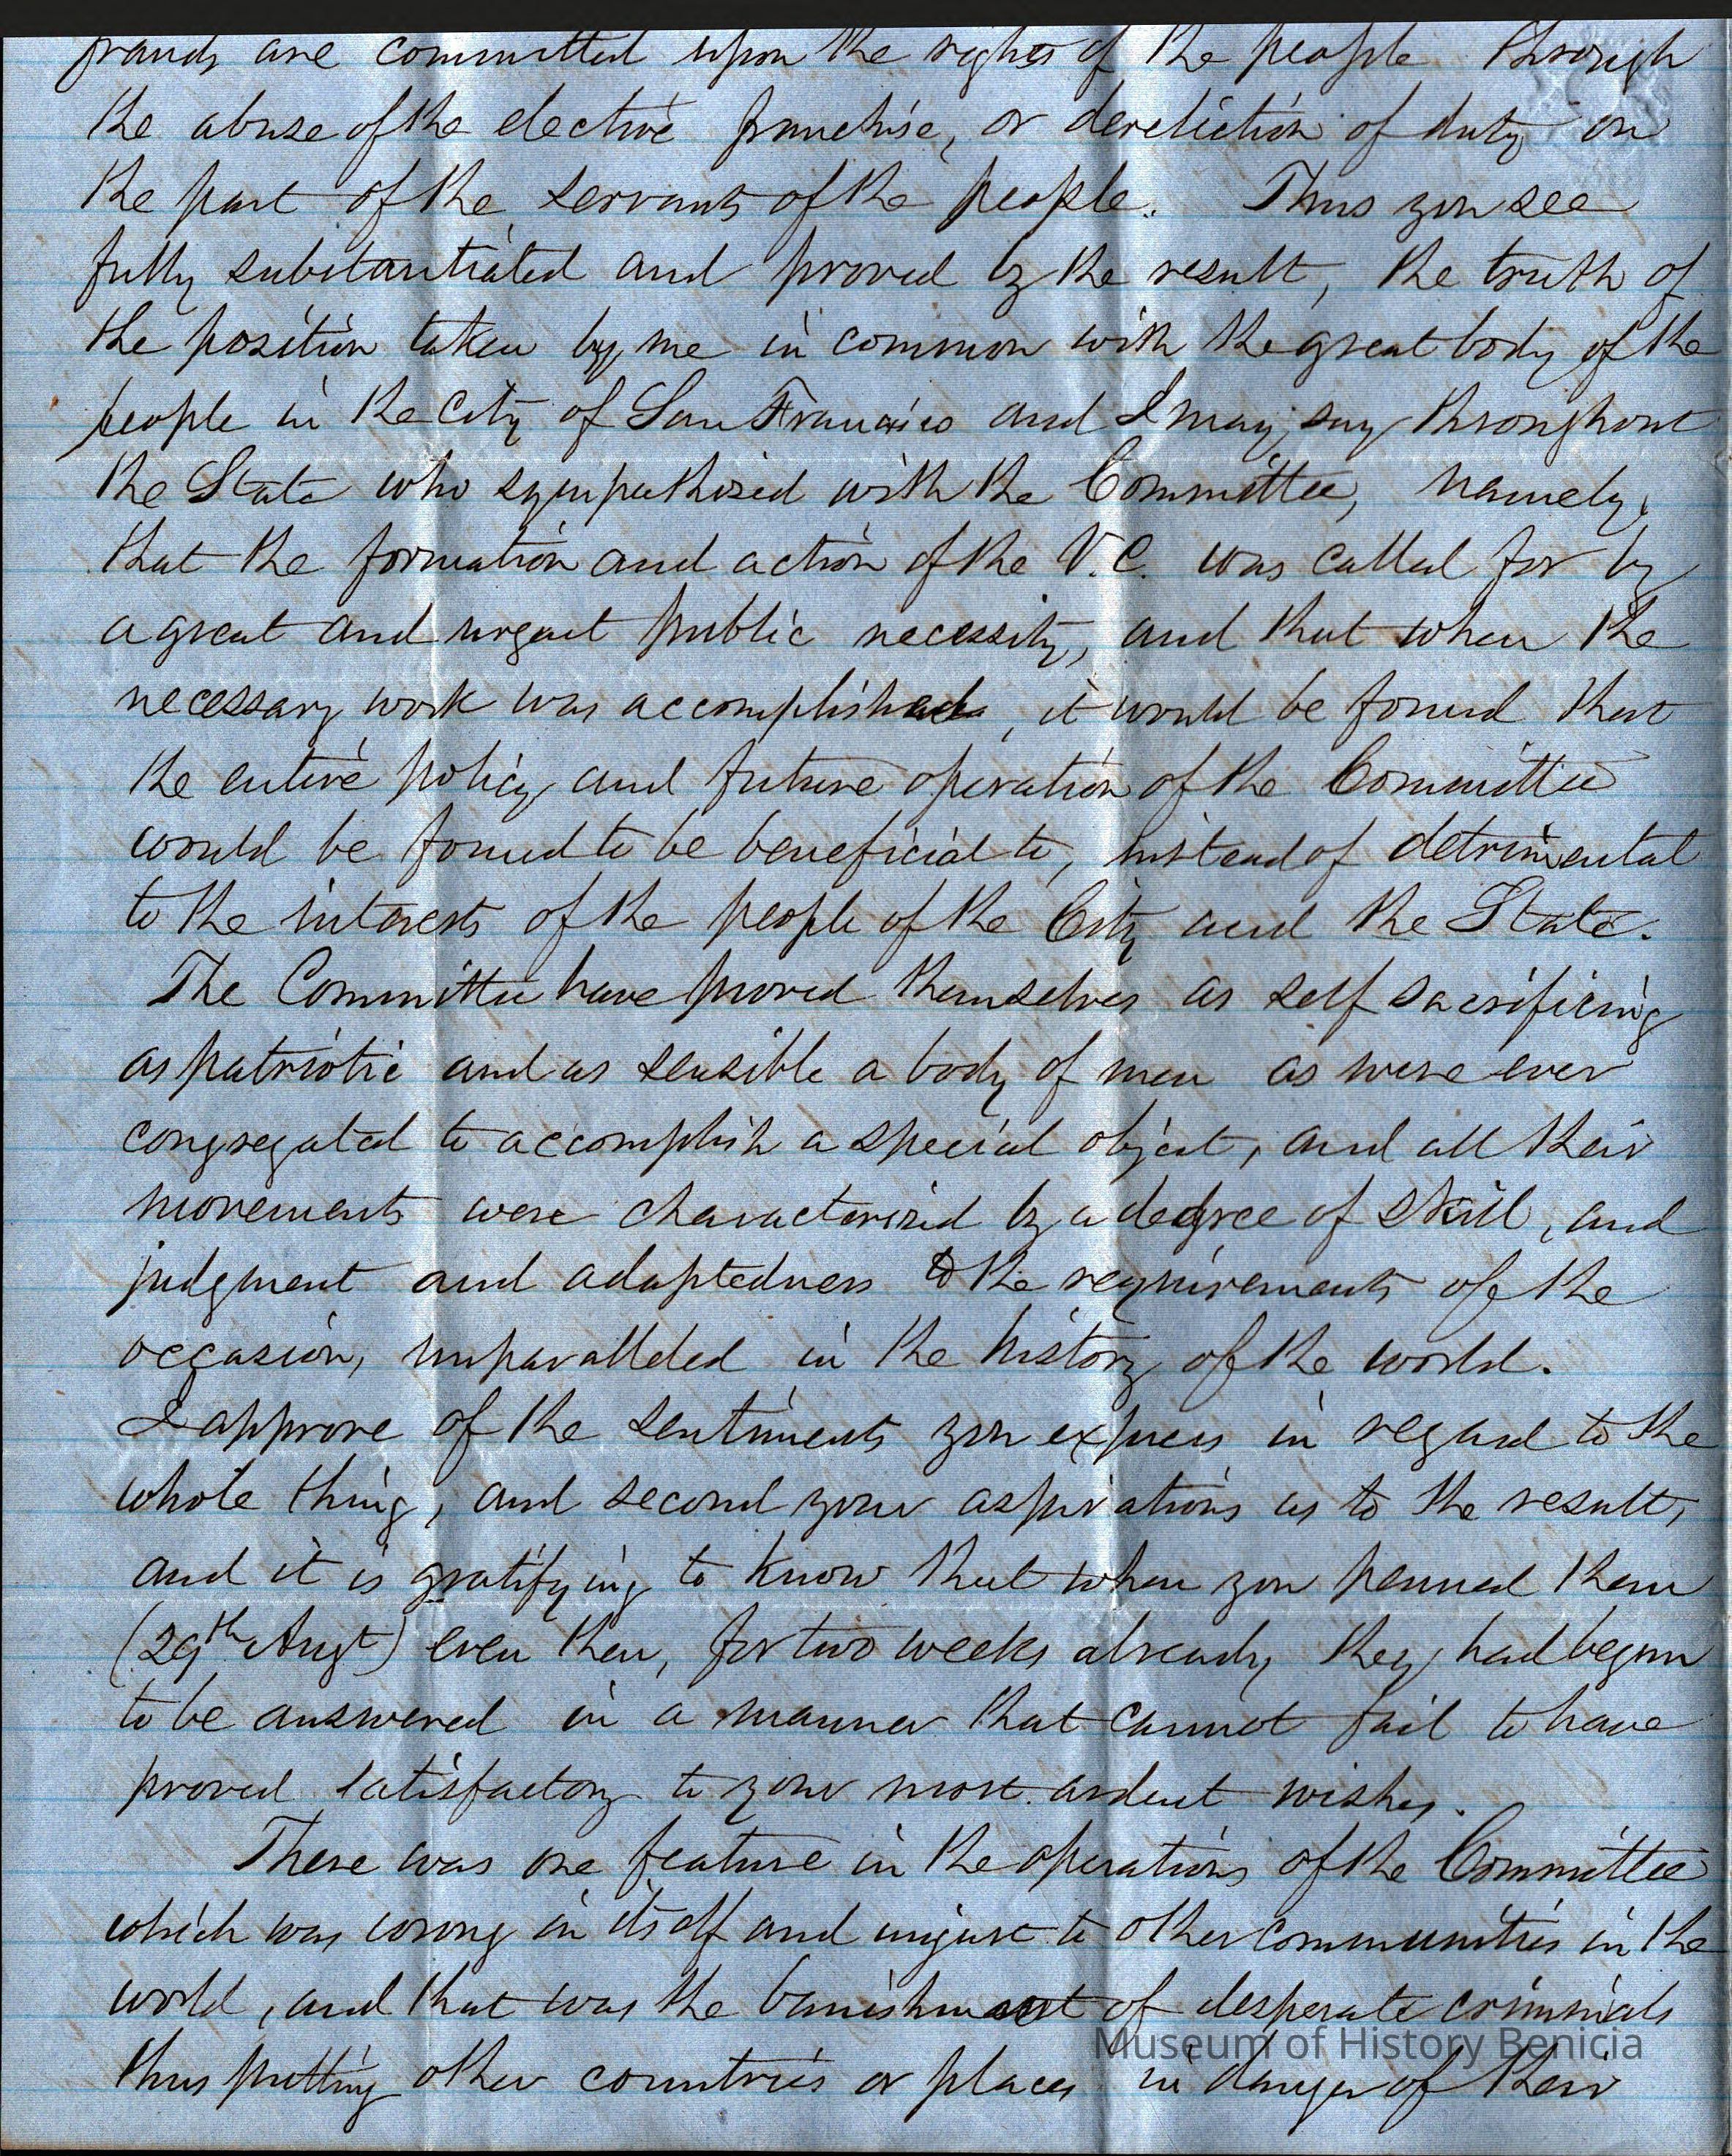 frauds are committed upon the rights of the people through
the abuse of the elective franchise, or dereliction of duty on
the part of the servants of the people. Thus you see
fully substantiated and proved by the result, the truth of
the position taken by me in common with the great body of the
people in the City of San Francisco and I may say throughout
the State who sympathised with the Committee, namely,
that the formation and action of the V.C. was called for by
a great and urgent public necessity, and that when the
necessary work was accomplished, it would be found that
the entire policy and future operation of the Committee
would be found to be beneficial to, instead of detrimental
to the interests of the people of the City and the State.
The Committee have proved themselves as self sacrificing
as patriotic and as sensible a body of men as were ever
congregated to accomplish a special object, and all their
movements were characterized by a degree of skill, and
judgment and adaptedness to the requirements of the
occasion, unparalleled in the history of the world.
I approve of the sentiments you express in regard to the
whole thing, and second your aspirations as to the result,
and it is gratifying to know that when you penned them
(29th Augt) even then, for two weeks already they had begun
to be answered in a manner that cannot fail to have
proved satisfactory to your most ardent wishes.
There was one feature in the operations of the Committee
which was wrong in itself and unjust to other communities in the
world, and that was the banishment of desperate criminals
thus putting other countries or places in danger of their
Museum of History Benicia